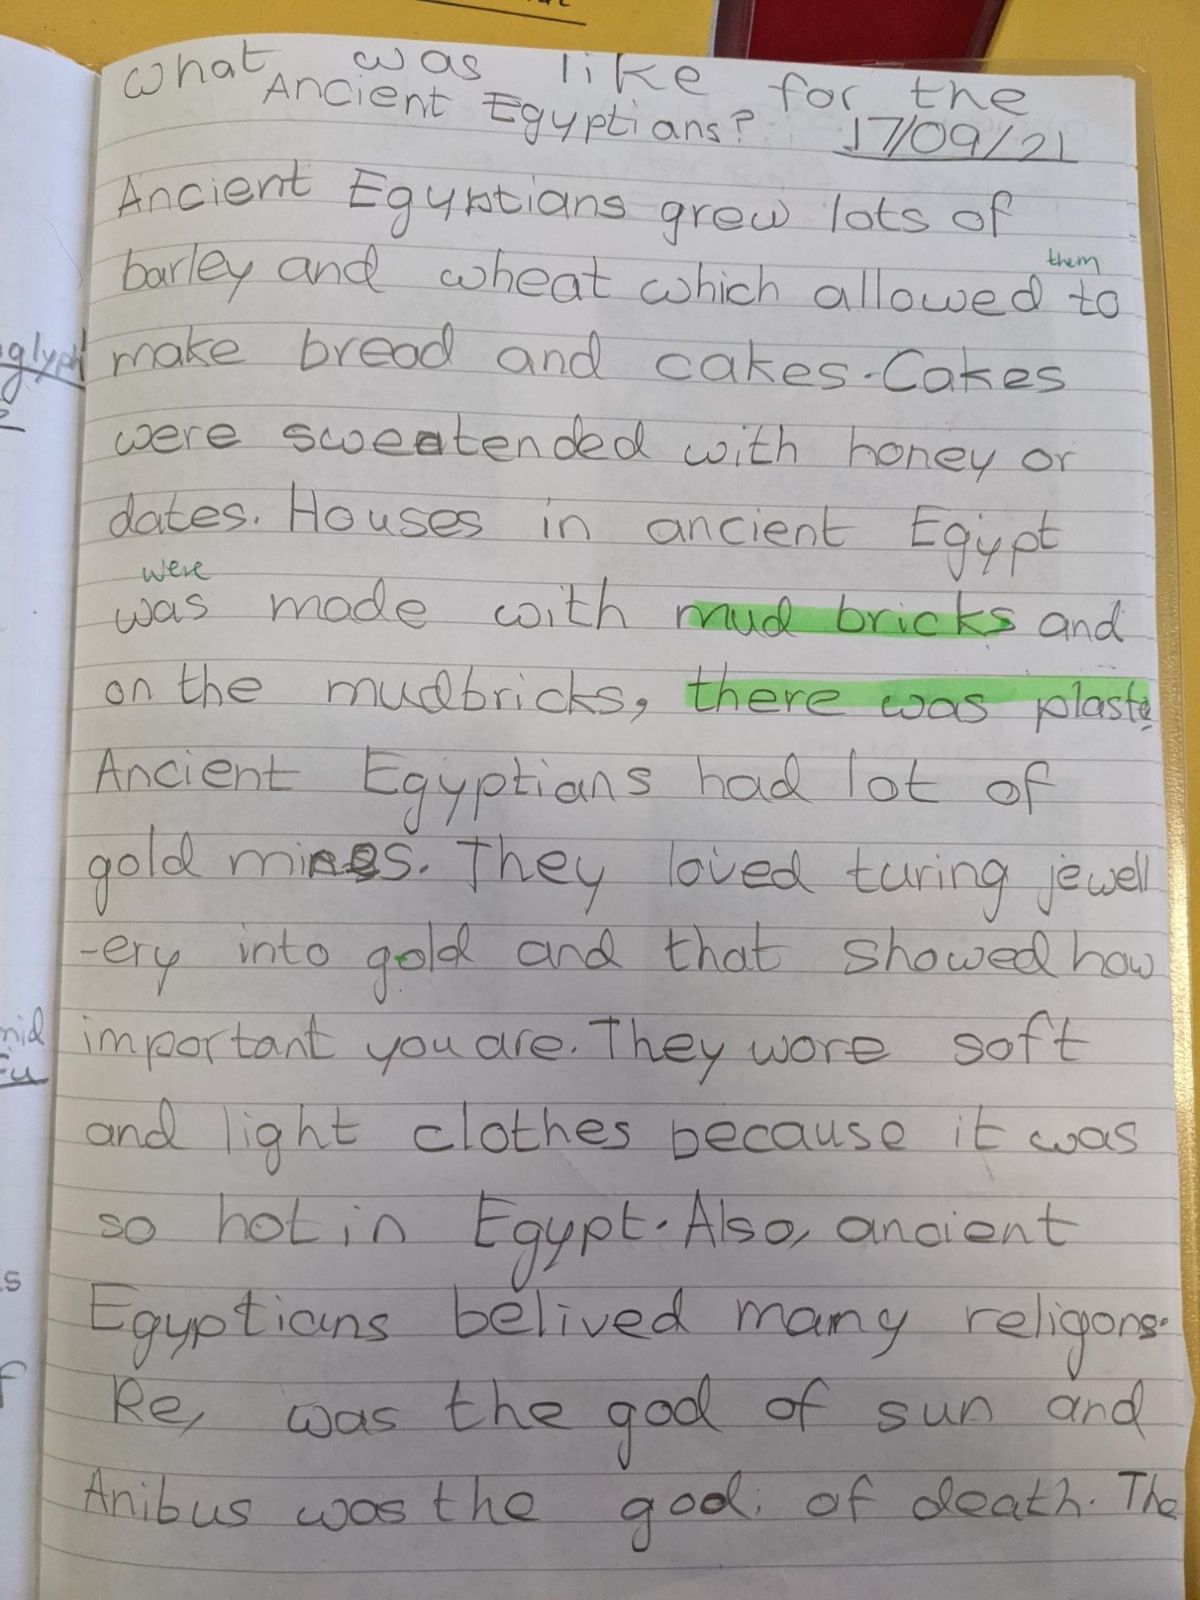 What was like for the
Ancient Egyptians?
17/09/21
Ancient Egyptians grew lots of
them
barley and wheat which allowed to
make bread and cakes. Cakes
were sweatended with honey or
dates. Houses in ancient Egypt
were
was made with mud bricks and
on the mudbricks, there was plaste
Ancient Egyptians had lot of
gold mines. They loved turing jewell
-ery into gold and that showed how
important you are. They wore soft
and light clothes because it was
so hot in Egypt. Also, ancient
Egyptians belived many religons.
Re, was the god of sun and
Anibus was the god. of death. The